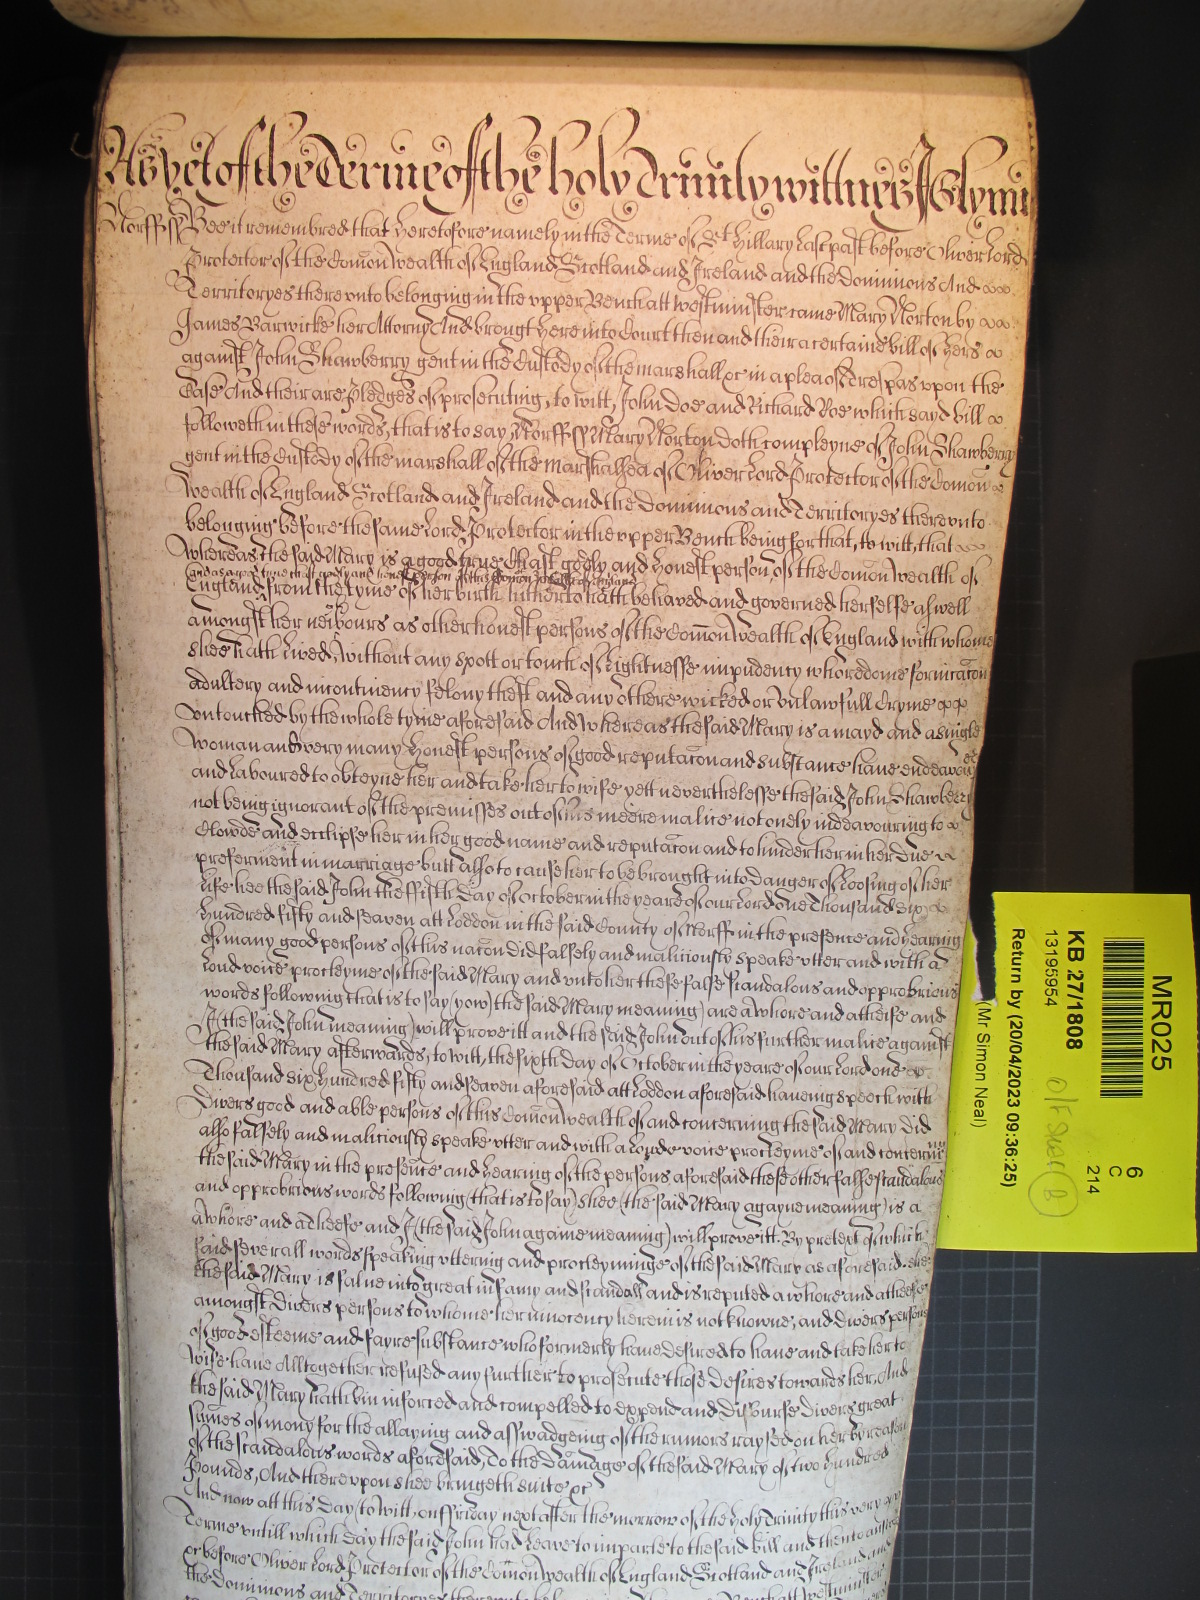 As yet of the Terme of the holy Trinity wittnes J Glynn
Norff ss Bee it remembred that heretofore namely in the Terme of St Hillary last past before Oliver Lord
Protector of the Comon wealth of England Scotland and Ireland and the Dominions And
Territoryes there vnto belonging in the vpper Bench att westminster came Mary Norton by
James Barwicke her Attorny And brought here into Court then and their a certaine bill of hers
against John Shawberry gent in the Custody of the marshall &c in a plea of Trespas vpon the
Case And their are Pledges of prosecuting, to witt, John Doe and Richard Roe which sayd bill
followeth in these words, that is to say, Norff ss Mary Norton doth compleyne of John Shawberry
gent in the Custody of the marshall of the marshalsea of Oliver Lord Protector of the Comon
wealth of England Scotland and Ireland and the Dominions and Territoryes there vnto
belonging before the same Lord Protector in the vpper Bench being for that, to witt, that
whereas the said Mary is a good true Chast godly and honest person of the Comon wealth of
and as a good true chast godly and honest person of this Comon wealth of England
England from the tyme of her birth hitherto hath behaved and governed herselfe as well
amongst her neibours as other honest persons of the Comon wealth of England with whome
shee hath lived, without any spott or touch of Lightnesse impudency whoredome fornicacon
adultery and incontinency felony theft and any othere wicked or vnlawfull Cryme
vntouched by the whole tyme aforesaid And whereas the said Mary is a mayd and a single
woman and very many honest persons of good reputacon and substance have endeavored
and Laboured to obteyne her and take her to wife yett neverthelesse the said John Shawberry
not being ignorant of the premisses out of his meere malice not onely indeavouring to
Clowde and ecclipse her in her good name and reputacon and to hinder her in her due
preferment in marriage butt also to cause her to be brought into Danger of Loosing of her
Life hee the said John the ffifth Day of October in the yeare of our Lord one Thousand six
hundred fifty and seaven att Loddon in the said County of Norff in the presence and hearing
of many good persons of this nacon did falsely and maliciously speake vtter and with a
Loud voice procleyme of the said Mary and vnto her these false scandalous and opprobrious
words following that is to say yow (the said Mary meaning) are a whore and a theife and
I (the said John meaning) will prove itt and the said John out of his further malice against
the said Mary afterwards, to witt, the sixth Day of October in the yeare of our Lord one
Thousand six hundred fifty and seaven aforesaid att Loddon aforesaid haveing speech with
Divers good and able persons of this Comon wealth of and concerning the said Mary did
also falsely and maliciously speake vtter and with a Lowde voice procleyme of and concerning
the said Mary in the presence and hearing of the persons aforesaid these other false scandalous
and opprobrious words following (that is to say) shee (the said Mary agayne meaning) is a
a whore and a theefe and I (the said John againe meaning) will prove itt. By pretext of which
said severall words speaking vttering and procleyminge of the said Mary as aforesaid shee
the said Mary is falne into great infamy and scandall and is reputed a whore and a theefe
amongst Divers persons to whome her innocency herein is not knowne, and Divers persons
of good esteeme and fayre substance who formerly have desired to have and take her to
wife have Alltogether refused any further to prosecute those Desires towards her, And
the said Mary hath bin inforced and compelled to expend and Disburse Divers great
sumes of mony for the allaying and asswadgeing of the rumors raysed on her by reason
of the scandalous words aforesaid, To the Damage of the said Mary of two hundred
Pounds, And there vpon shee bringeth suite &c
And now att this Day (to witt) on ffriday next after the morrow of the holy Trinity this very
Terme vntill which day the said John had Leave to imparle to the said bill and then to answer
&c before Oliver Lord Protector of the Comon wealth of England Scotland and Ireland and
the Dominions and Territoryes there vnto att westminster
MR025
6
C
214
KB 27/1808
13195954
Return by (20/04/2023 09:36:25)
(Mr Simon Neal)